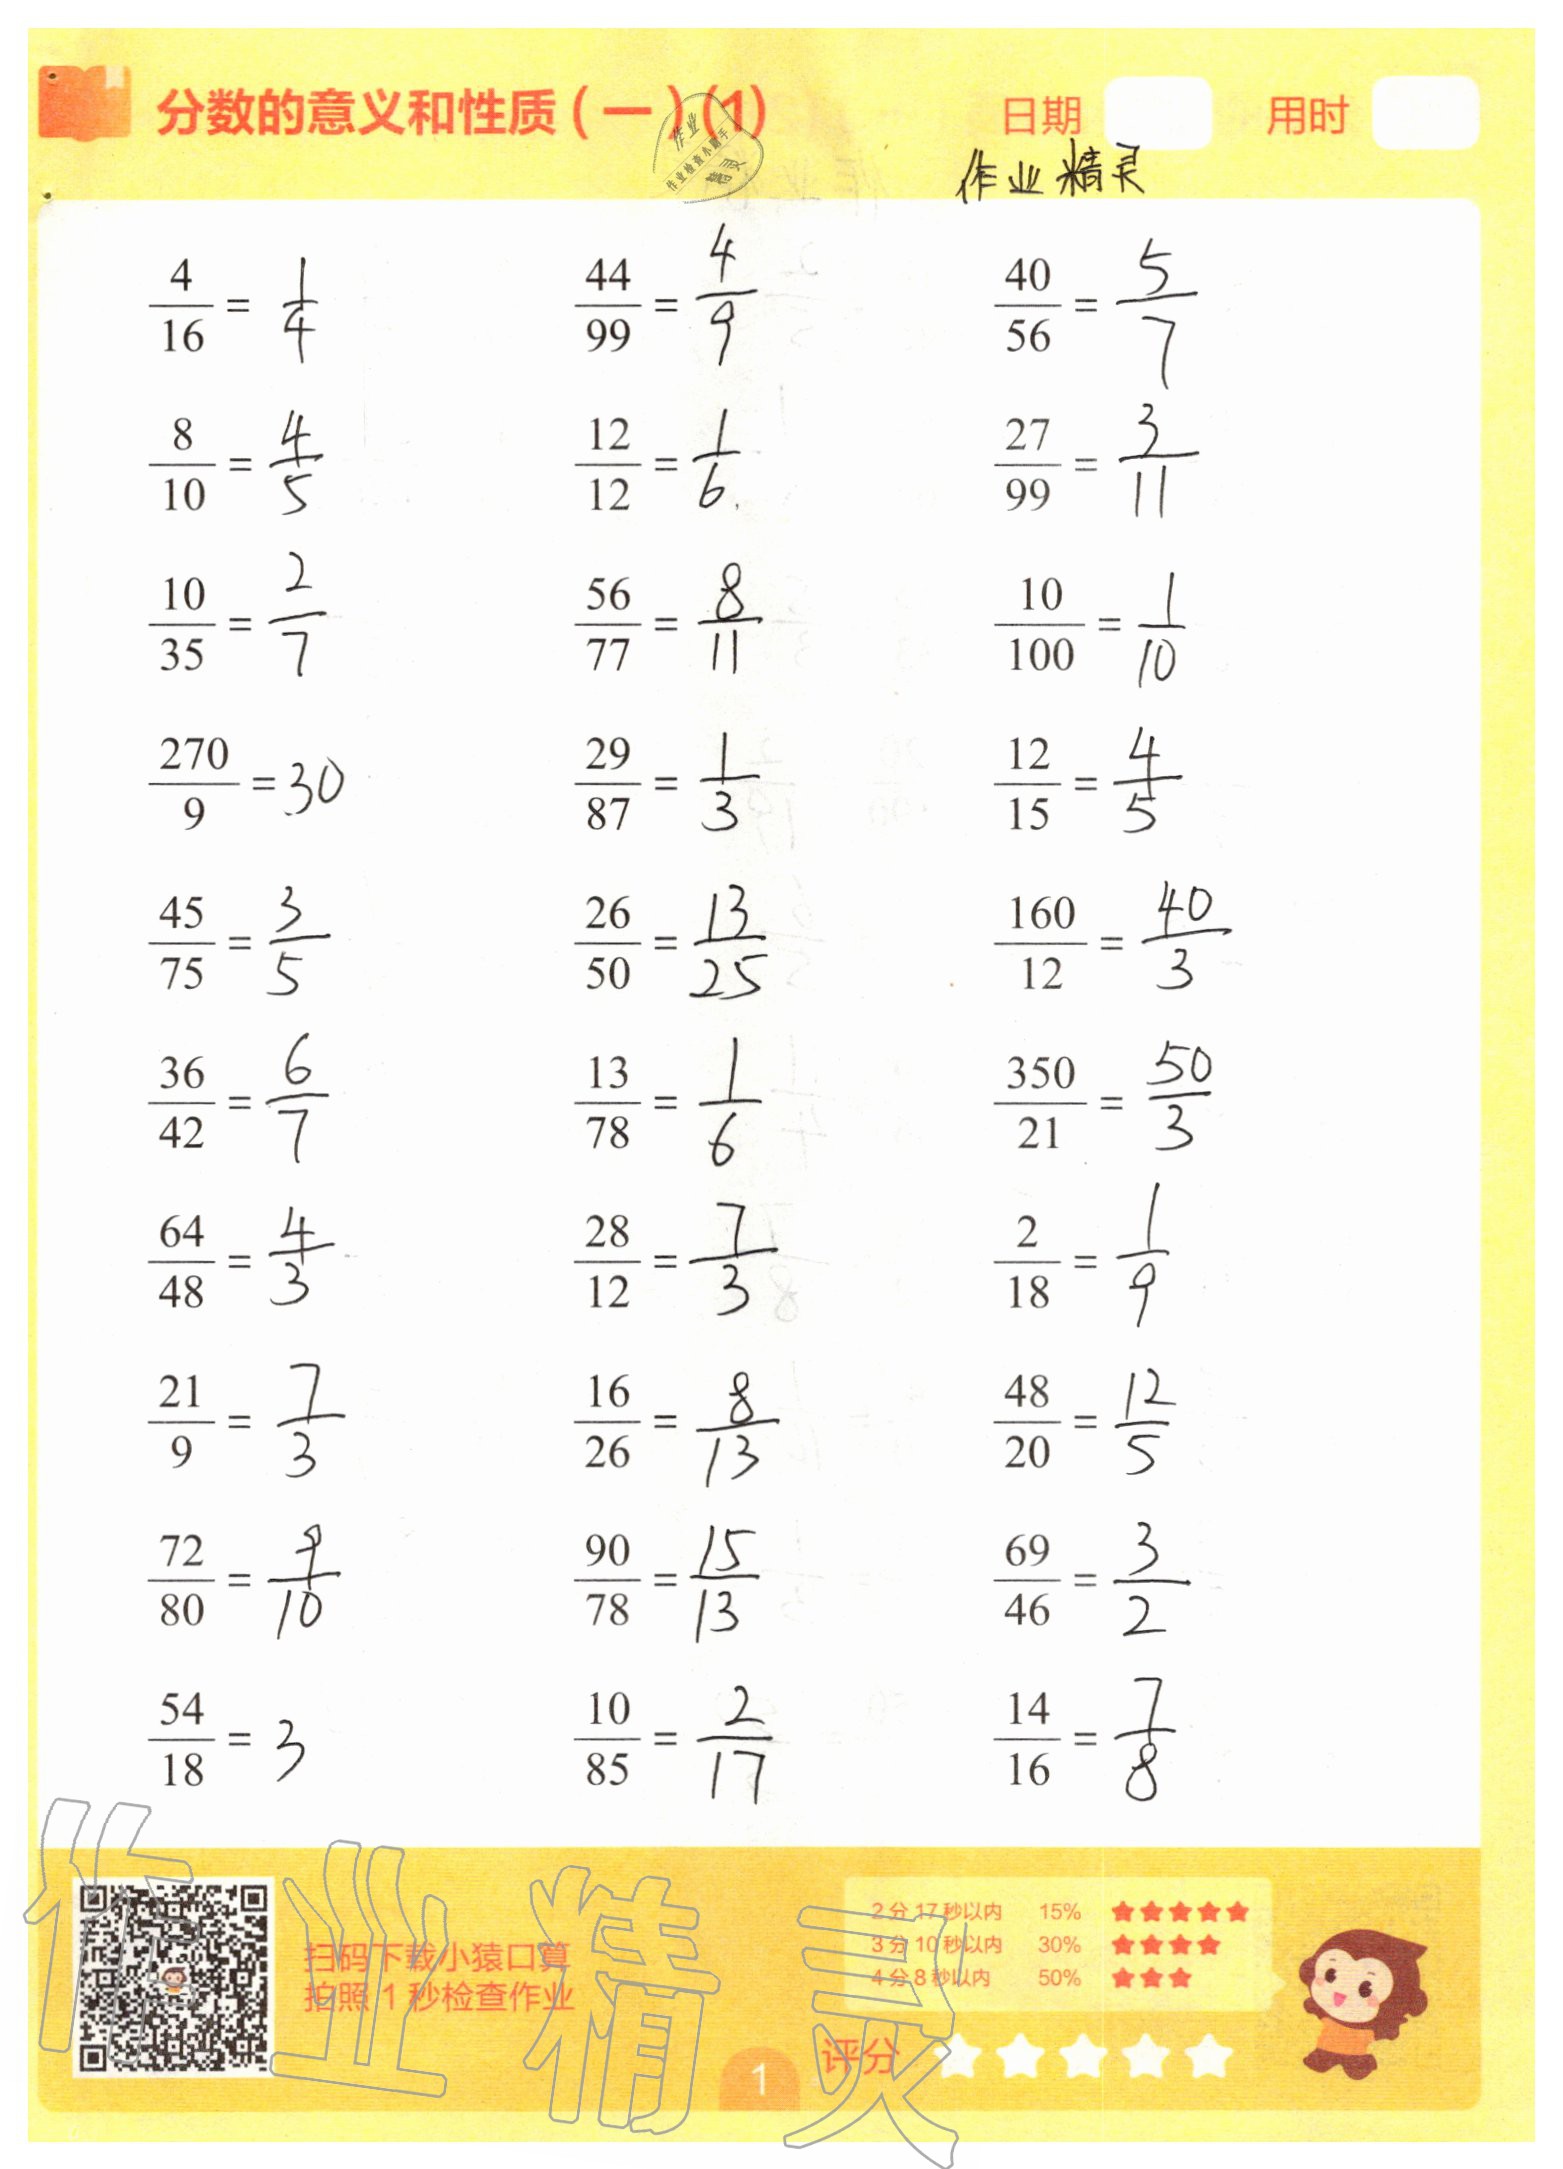 分数的意义和性质(一)(1) 日期 用时
作业
作业检查小助手
精灵
作业精灵
4/16 = 1/4 44/99 = 4/9 40/56 = 5/7
8/10 = 4/5 12/12 = 1/6 27/99 = 3/11
10/35 = 2/7 56/77 = 8/11 10/100 = 1/10
270/9 = 30 29/87 = 1/3 12/15 = 4/5
45/75 = 3/5 26/50 = 13/25 160/12 = 40/3
36/42 = 6/7 13/78 = 1/6 350/21 = 50/3
64/48 = 4/3 28/12 = 7/3 2/18 = 1/9
21/9 = 7/3 16/26 = 8/13 48/20 = 12/5
72/80 = 9/10 90/78 = 15/13 69/46 = 3/2
54/18 = 3 10/85 = 2/17 14/16 = 7/8
作业精灵
扫码下载小猿口算
拍照1秒检查作业
2分17秒以内 15% ★★★★★
3分10秒以内 30% ★★★★
4分8秒以内 50% ★★★
评分
1